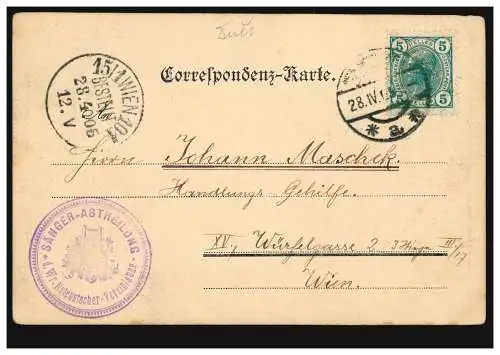 Correspondenz-Karte.
5 HELLER 5
5 5
28.IV.
* a
15/1 WIEN 101
BESTELLT
28.4.05
12.V
An
Herrn Johann Maschek
Handlungs Gehilfe.
XV, Würfelgasse 2 III/17
Wien.
* SÄNGER-ABTHEILUNG *